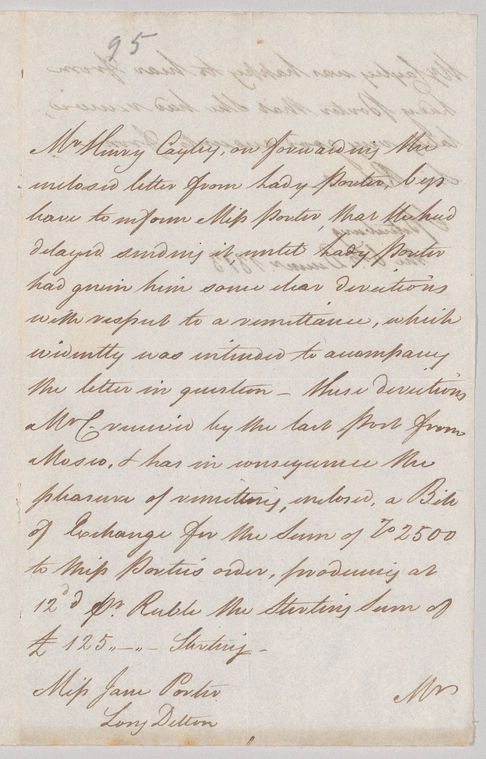 95
Mr Henry Cayley, on forwarding the
inclosed letter from Lady Porter, begs
leave to inform Miss Porter, that he had
delayed sending it until Lady Porter
had given him some clear directions
with respect to a remittance, which
evidently was intended to accompany
the letter in question – these directions
Mr C. received by the last Post from
Mosco, & has in consequence the
pleasure of remitting, inclosed, a Bill
of Exchange for the Sum of Ro 2500
to Miss Porter's order, producing at
12d pr. Ruble the Sterling Sum of
£ 125,,—,,- Sterling –
Miss Jane Porter
Long Ditton
Mr